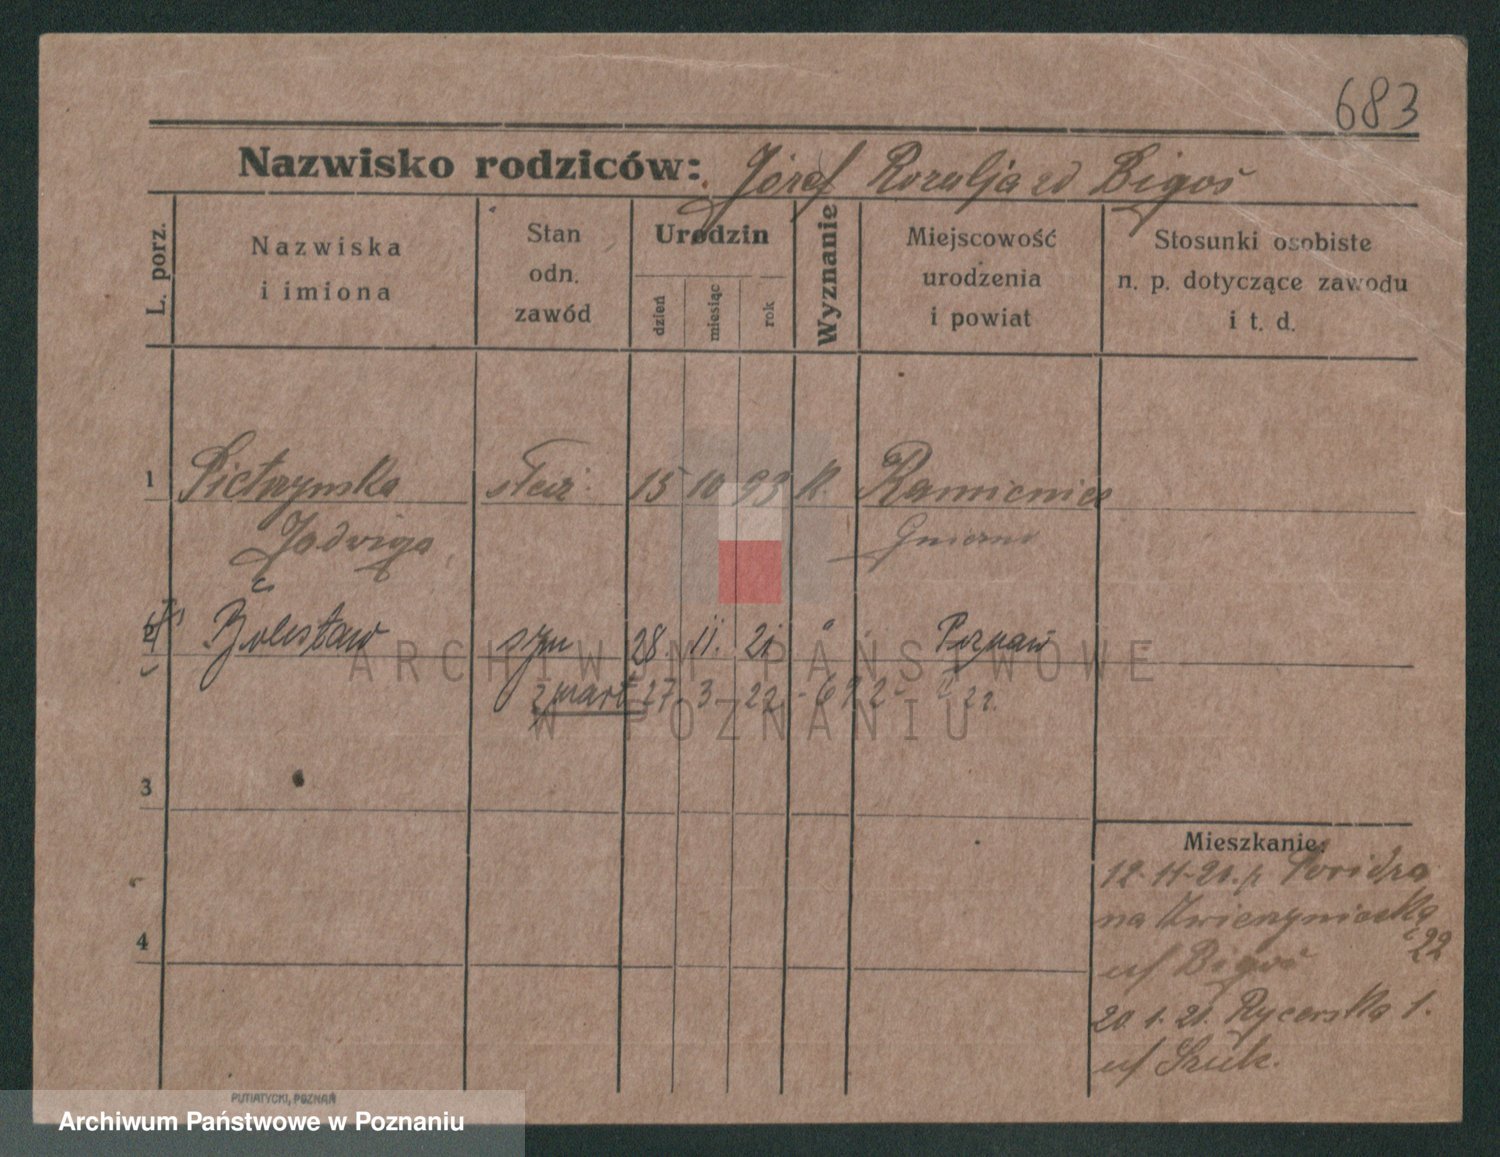 683
Nazwisko rodziców: Józef Rozalja zd Bigoś
L. porz.
Nazwiska
i imiona
Stan
odn.
zawód
Urodzin
dzień
miesiąc
rok
Wyznanie
Miejscowość
urodzenia
i powiat
Stosunki osobiste
n. p. dotyczące zawodu
i t. d.
1 Pietrzynska służ. 15 10 93 K. Kamieniec
Jadwiga Gniezno
2 Bolesław syn 28. 11. 21. " Poznań
zmarł 27. 3 22 692 22.
3
4
Mieszkanie:
12-11-21. p.
na Zwierzyniecką
u/ Bigoś 22
20. 1. 21. Rycerska 1.
u/
ARCHIWUM PAŃSTWOWE
W POZNANIU
PUTIATYCKI, POZNAŃ
Archiwum Państwowe w Poznaniu